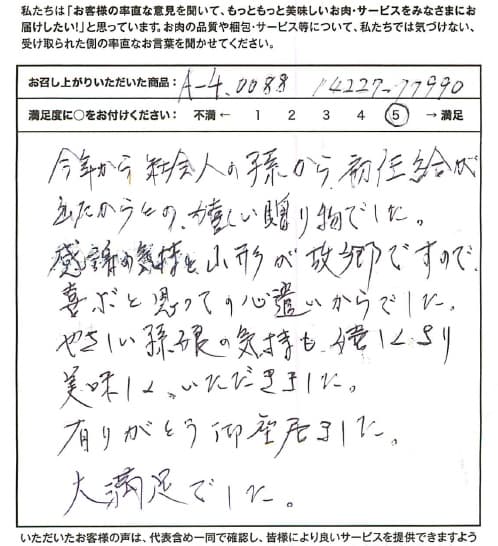 私たちは「お客様の率直な意見を聞いて、もっともっと美味しいお肉・サービスをみなさまにお
届けしたい!」と思っています。お肉の品質や梱包・サービス等について、私たちでは気づけない、
受け取られた側の率直なお言葉を聞かせてください。
お召し上がりいただいた商品: A-4.0088 14227-77990
満足度に○をお付けください: 不満 ← 1 2 3 4 5 → 満足
今年から社会人の孫から、初任給が
出たからとの、嬉しい贈り物でした。
感謝の気持と山形が故郷ですので、
喜ぶと思っての心遣いからでした。
やさしい孫娘の気持も嬉しくより
美味しく、いただきました。
有りがとう御座居ました。
大満足でした。
いただいたお客様の声は、代表含め一同で確認し、皆様により良いサービスを提供できますよう